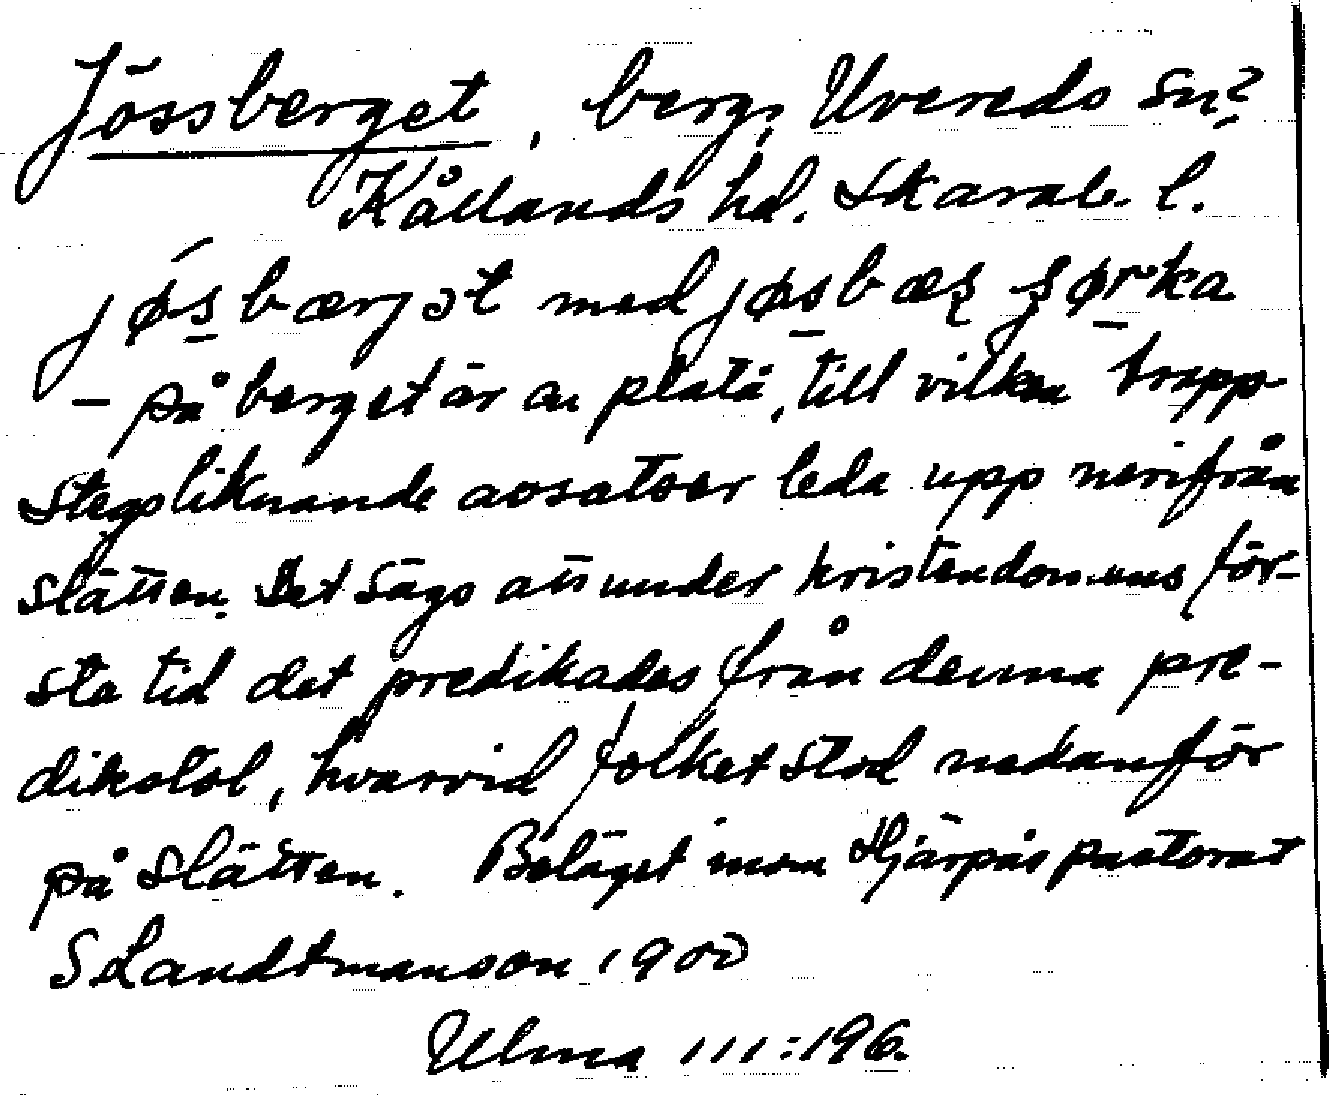 Jössberget, berg, Uvereds sn?
Kållands hd. Skarab. l.
jøsbærjət med jøsbæʂ ʂørka
– på berget är en platå, till vilken trapp-
stegsliknande avsatser leda upp nerifrån
slätten. Det säges att under kristendomens för-
sta tid det predikades från denna pre-
dikstol, hvarvid folket stod nedanför
på slätten. Beläget inom Hjärpås pastorat
S Landtmanson 1900
Ulma 111:196.